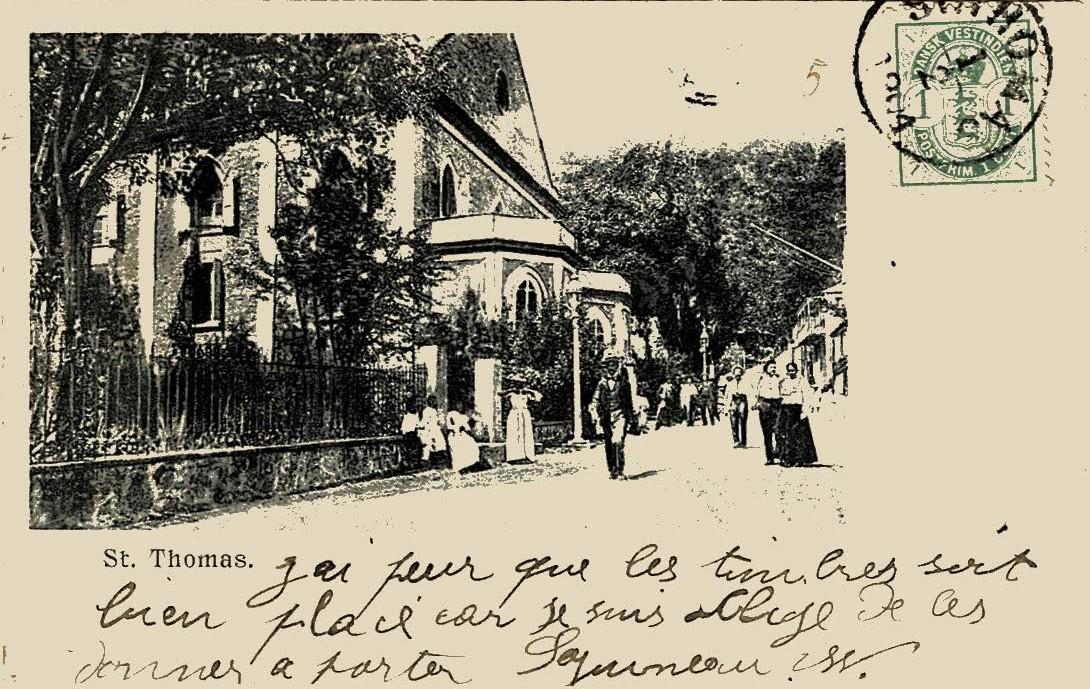 5
DANSK VESTINDIEN
1 1
St. Thomas. j'ai peur que les timbres soit
bien placé car je suis obligé de les
donner a porter